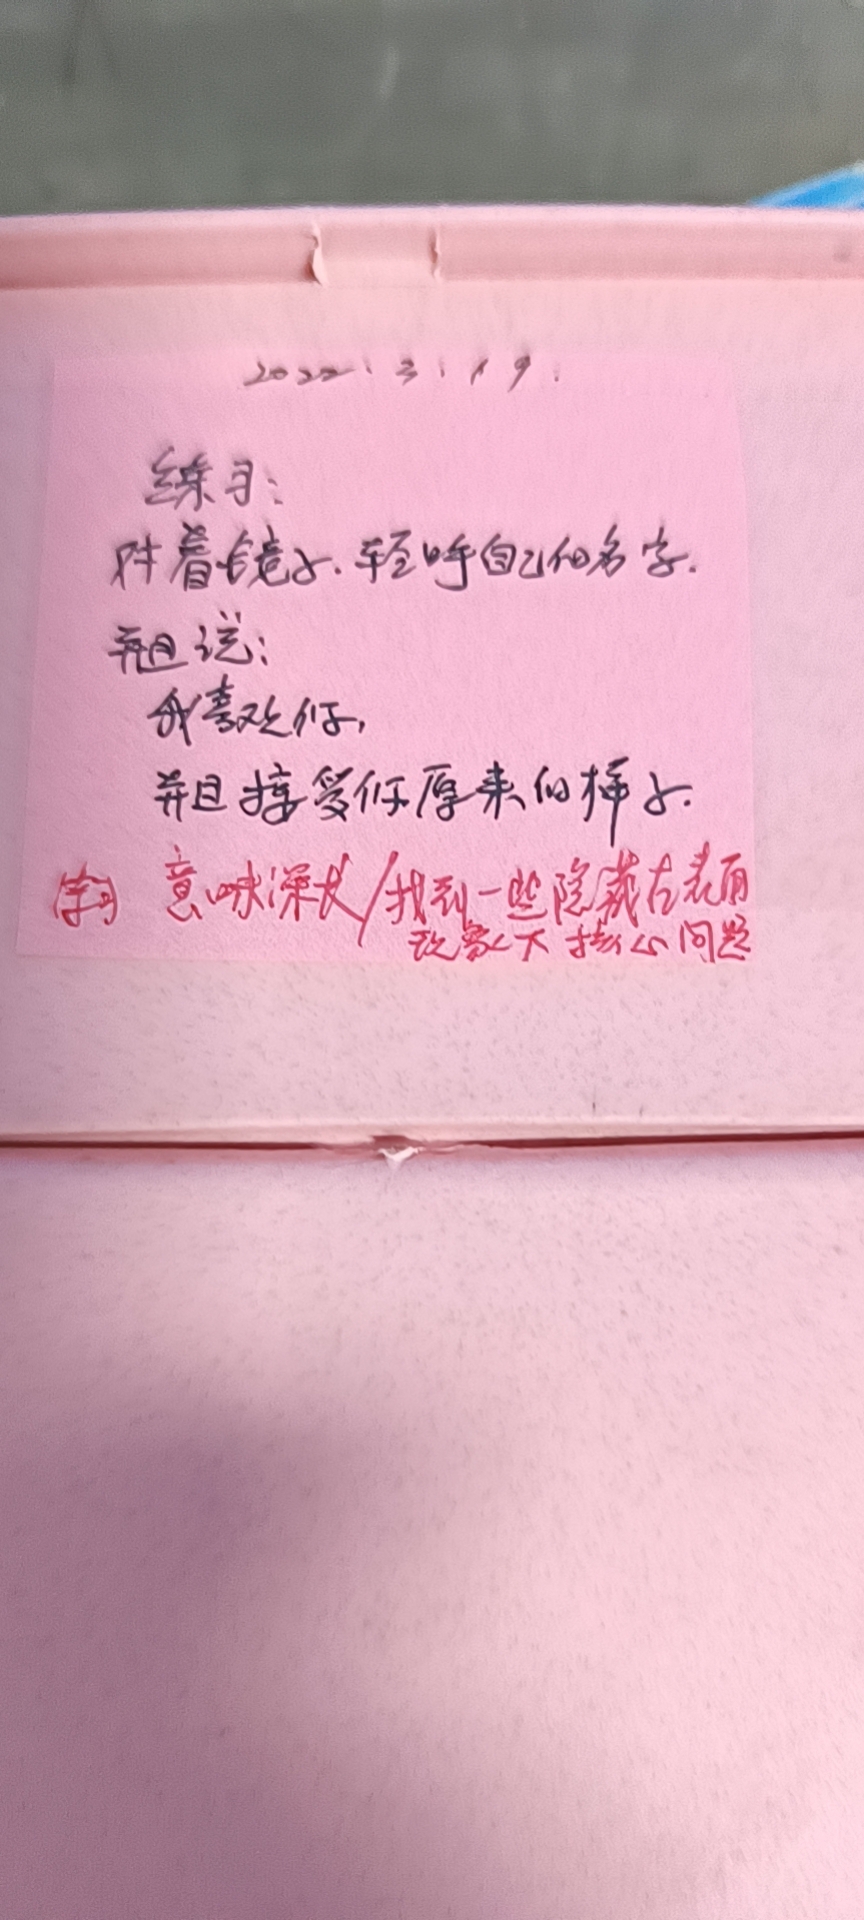 2022.3.19.
练习:
对着镜子.轻呼自己的名字.
并且说:
我喜欢你,
并且接受你原来的样子.
(学习) 意味深长/找到一些隐藏在表面
现象下核心问题